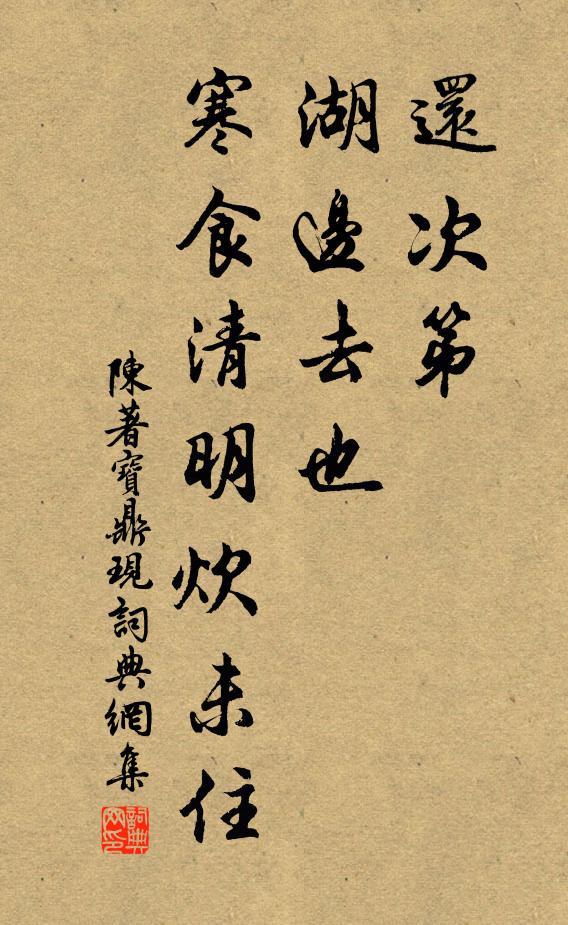 還次第
湖邊去也
寒食清明炊未住
陳著寶鼎現詞典網集
詞典
网印